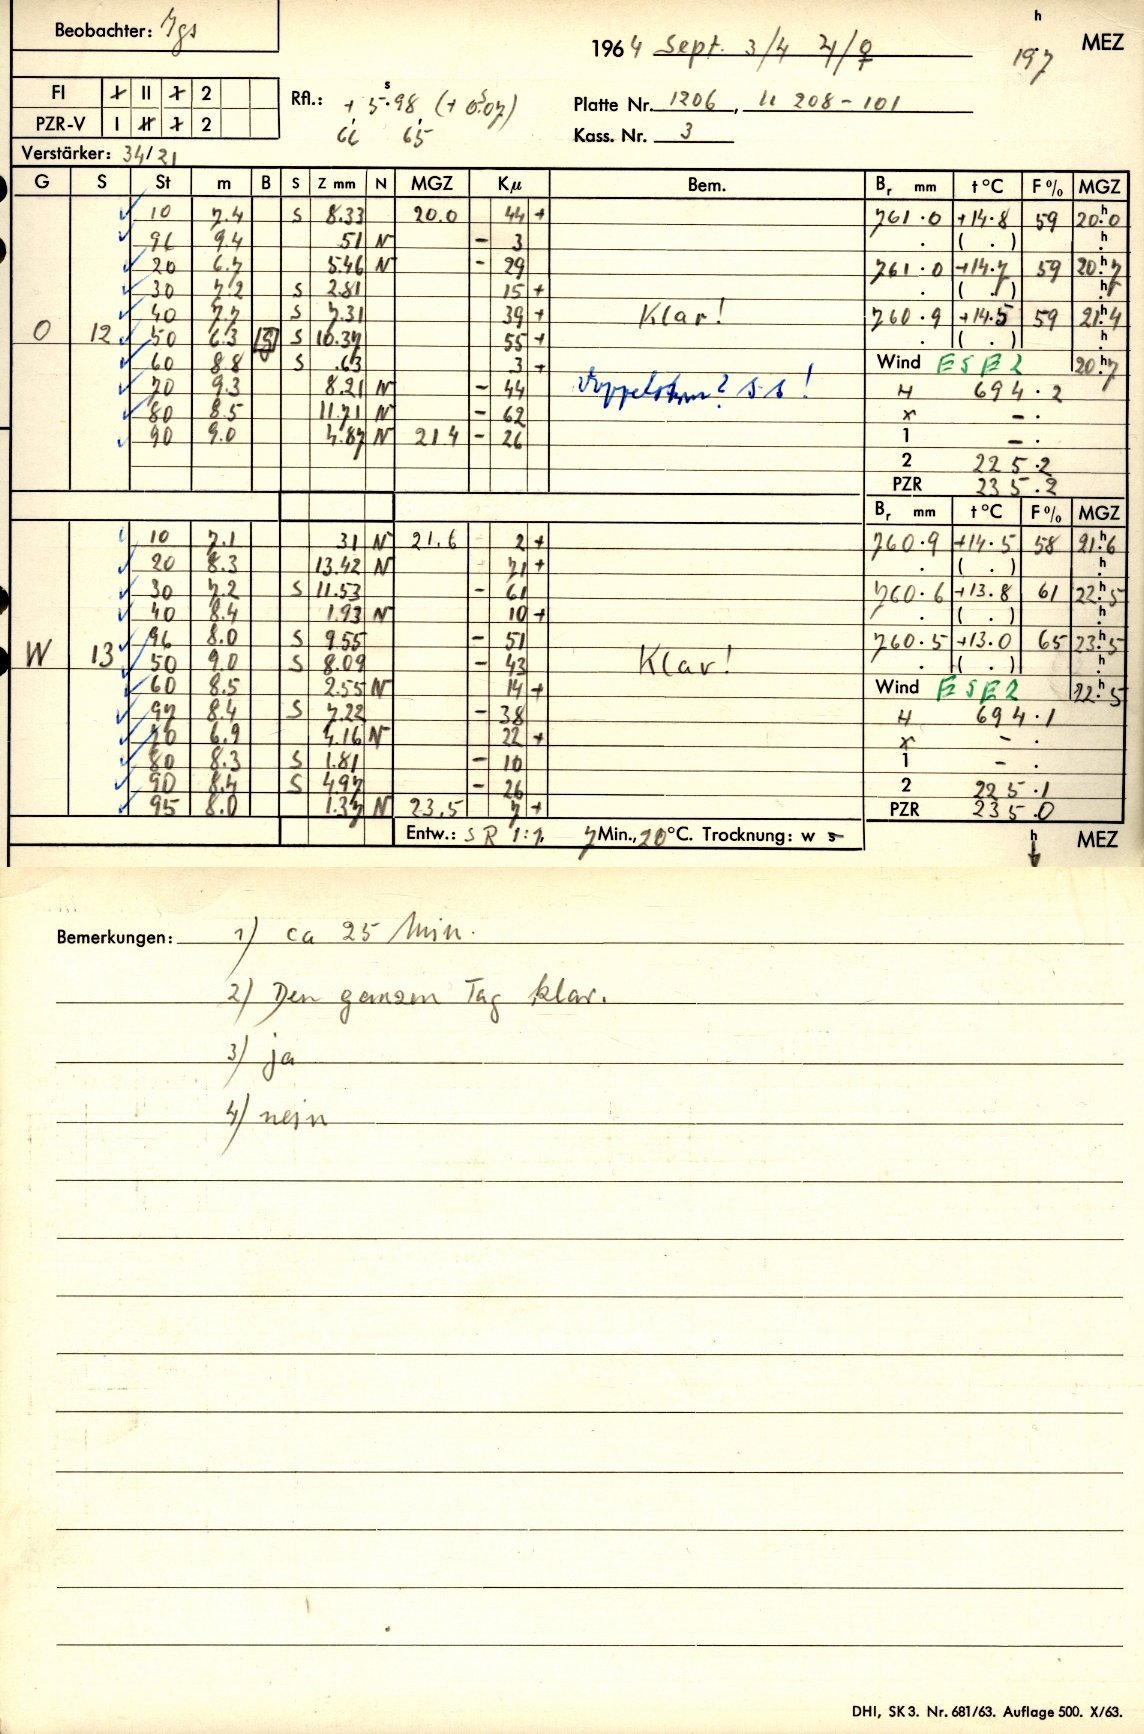 Beobachter: Jgs
1964 Sept. 3/4 ♃/♀ 19.7 h MEZ
FI I II 1 2
PZR-V I II 1 2
Rfl.: + 5.98 s (+ 0.07 s)
66 65
Platte Nr. 1206, 11 208 - 101
Kass. Nr. 3
Verstärker: 34/21
G S St m B S Z mm N MGZ Kµ Bem. Br mm t °C F % MGZ
10 7.4 S 8.33 20.0 44 + 761.0 +14.8 59 20.0 h
96 9.4 51 N - 3 . ( . ) . h
20 6.7 5.46 N - 29 761.0 +14.7 59 20.7 h
30 7.2 S 2.81 15 + . ( . ) . h
40 7.7 S 7.31 39 + Klar! 760.9 +14.5 59 21.4
O 12 50 6.3 S S 10.37 55 + . ( . ) . h
60 8.8 S .63 3 + Wind ESE 2 20.7 h
70 9.3 8.21 N - 44 ! H 694.2
80 8.5 11.71 N - 62 x - .
90 9.0 4.87 N 21 4 - 26 1 - .
2 225.2
PZR 235.2
Br mm t °C F % MGZ
10 7.1 31 N 21.6 2 + 760.9 +14.5 58 21.6 h
20 8.3 13.42 N 71 + . ( . ) . h
30 7.2 S 11.53 - 61 760.6 +13.8 61 22.5 h
40 8.4 1.93 N 10 + . ( . ) . h
96 8.0 S 9.55 - 51 760.5 +13.0 65 23.5 h
W 13 50 9.0 S 8.09 - 43 Klar! . ( . ) . h
60 8.5 2.55 N 14 + Wind ESE 2 22.5 h
97 8.4 S 7.22 - 38 H 694.1
70 6.9 4.16 N 22 + x - .
80 8.3 S 1.81 - 10 1 - .
90 8.4 S 4.97 - 26 2 225.1
95 8.0 1.37 N 23.5 7 + PZR 235.0
Entw.: SR 1:7. 7 Min., 20 °C. Trocknung: w s h MEZ
Bemerkungen: 1) ca 25 Min.
2) Den ganzen Tag klar.
3) ja
4) nein
DHI, SK 3. Nr. 681/63. Auflage 500. X/63.